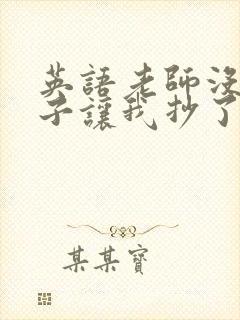 英語老師沒
子讓我抄了
某某寶